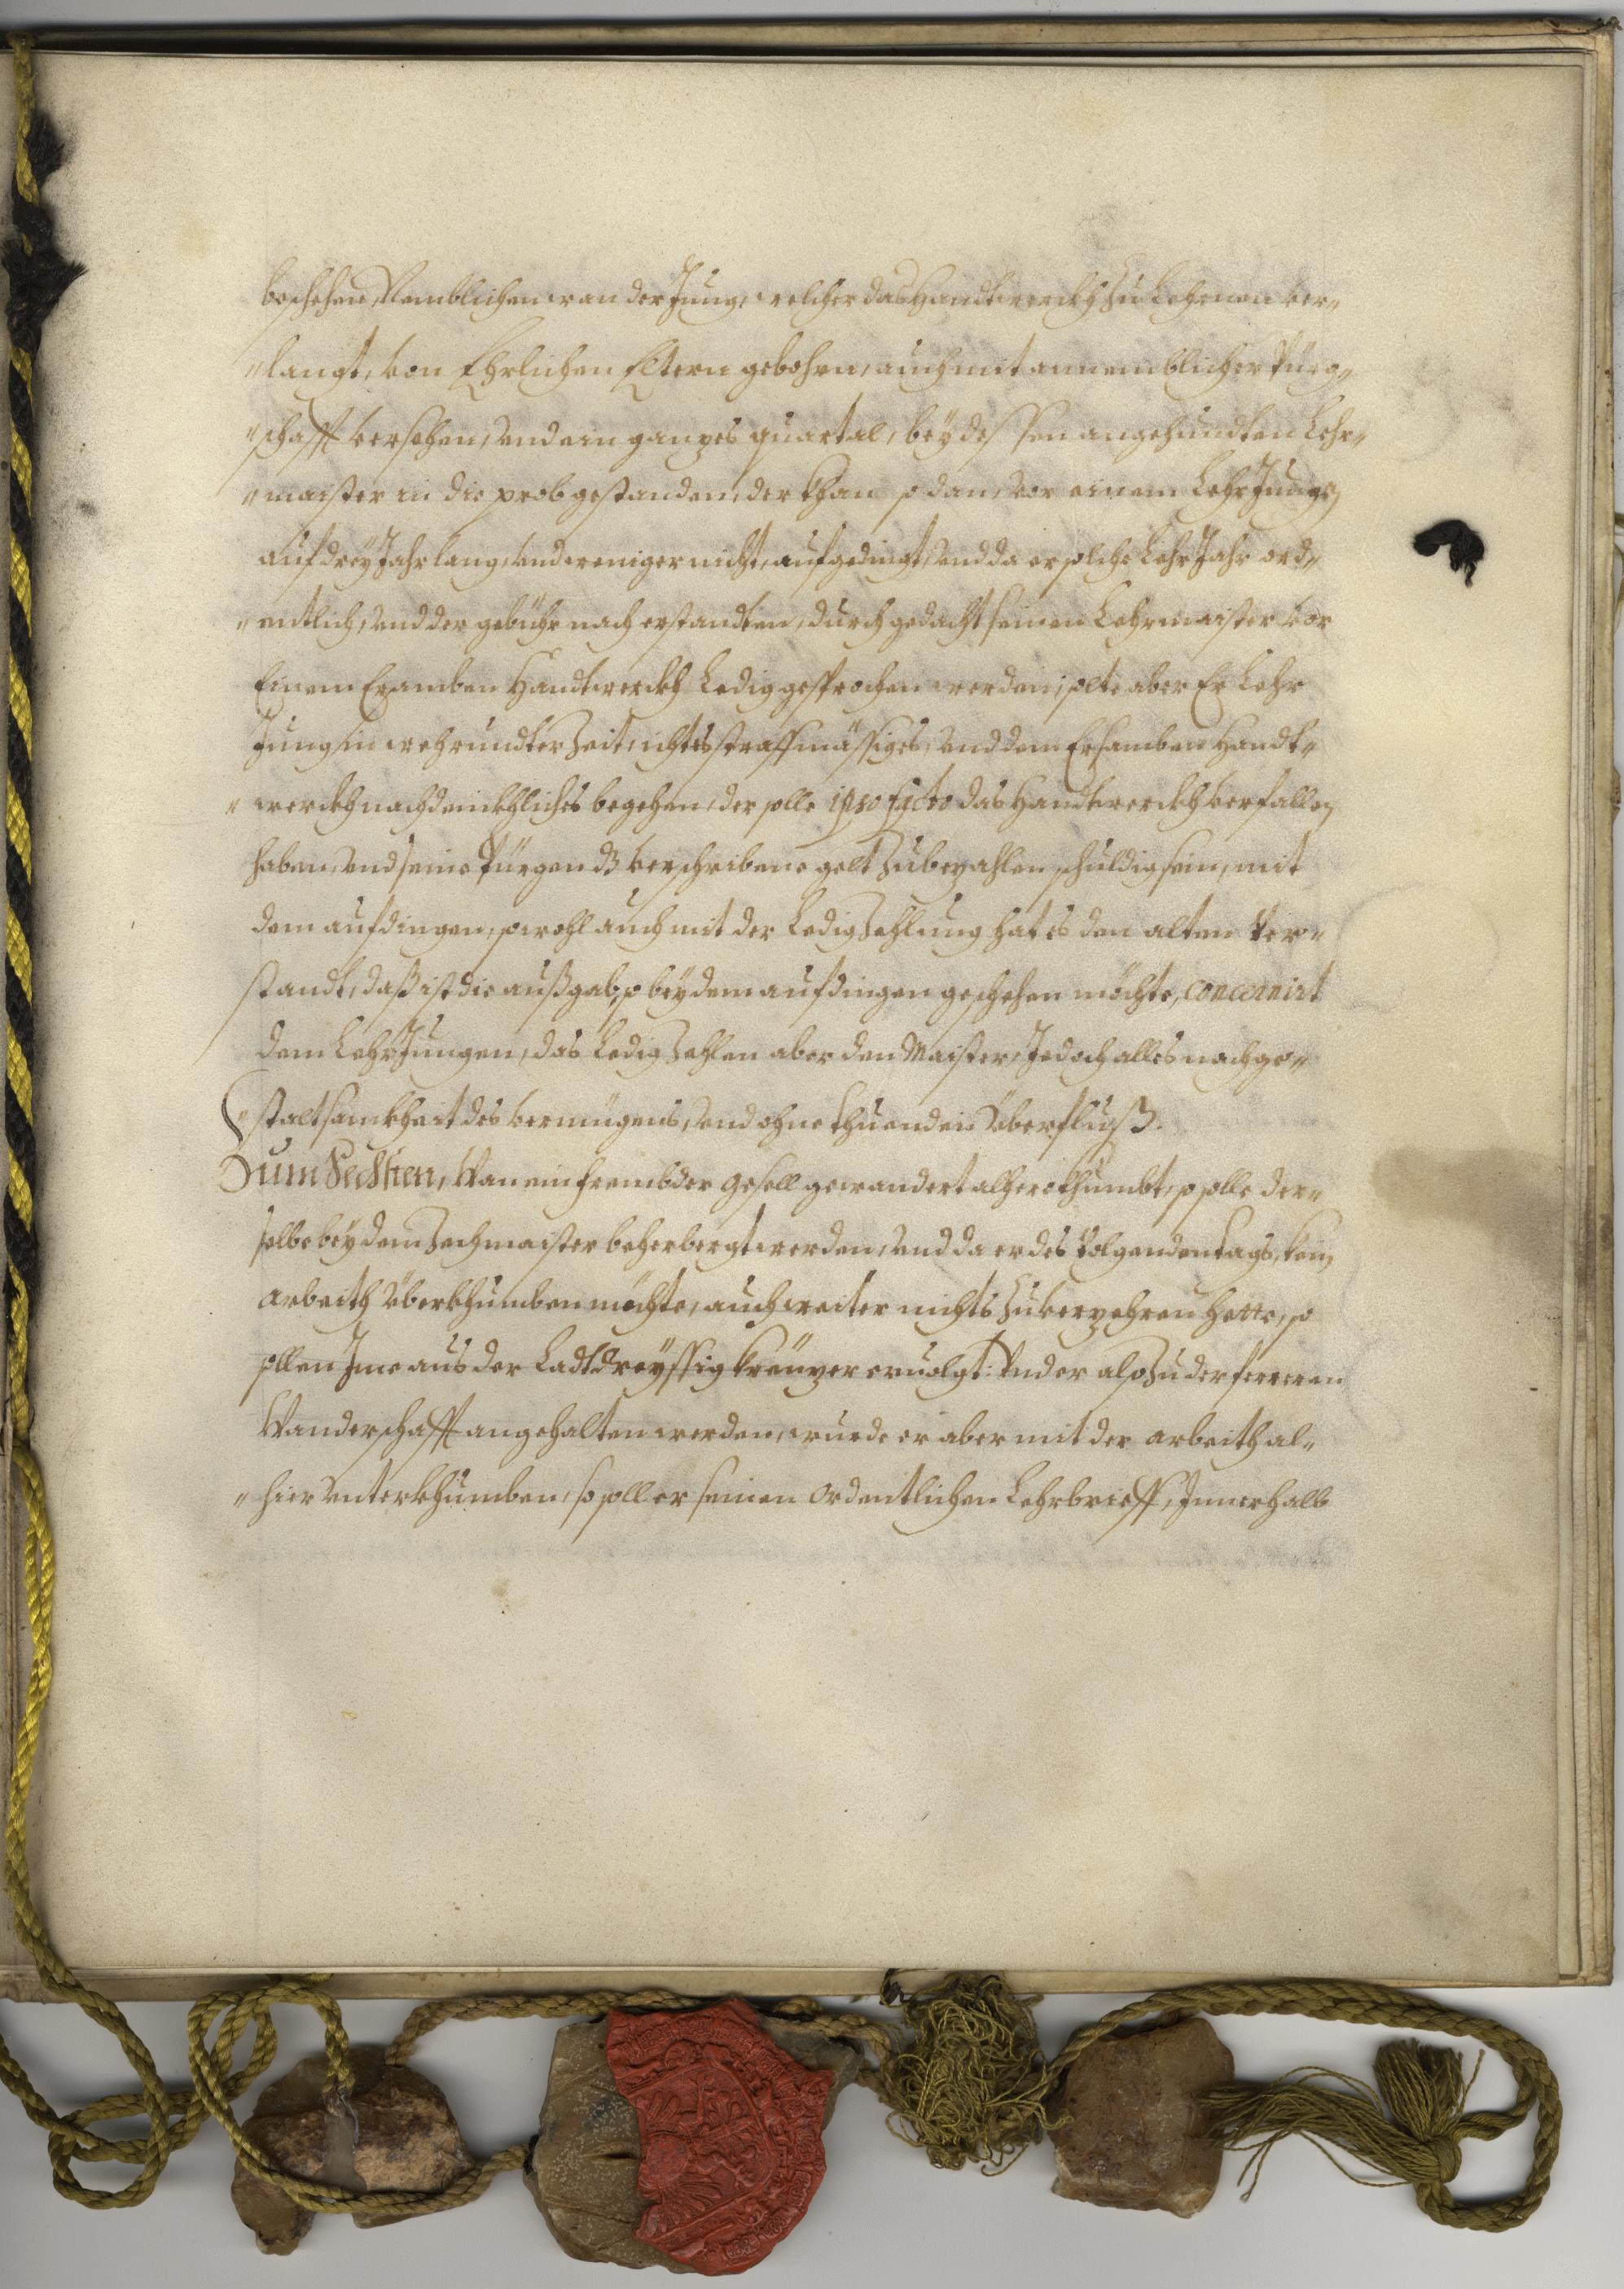 beschehen, Nemblichen wan der Jung, welcher das Handtwerckh zu Lehrnen ver„
„langt, von Ehrlichen Eltern gebohrn, auch mit annemblicher Pürg„
„schafft versehen, vnd ein ganzes quartal, bey dessen angehundten Lehr„
„maister in die prob gestanden, der khan so dan, vor einem LehrJungen
auf drey Jahr lang, vnd weniger nicht, aufgedingt, vnd da er solche LehrJahr ord„
„entlich, vnd der gebühr nach erstandten, durch gedacht seinen Lehrmaister vor
Einem Ersamben Handtwerckh Ledig gesprochen werden; solte aber Er Lehr
Jung in wehrundter Zeit, ichtes straffmässiges, vnd dem Ersamben Handt„
„werckh nachdenckhliches begehen, der solle ipso facto das Handtwerckh verfallen
haben, vnd seine Pürgen dz verschribene gelt zubezahlen schuldig sein, mit
dem aufdingen, sowohl auch mit der LedigZehlung hat es den alten Ver„
standt, daß ist die außgab, so bey dem aufdingen geschehen möchte, concernirt
dem LehrJungen, das LedigZehlen aber den Maister, Jedoch alles nach ge„
„staltsamkheit des vermügens, vnd ohne thuenden Überfluß.
Zum Sechsten, Wan ein frembder Gesell gewandert alhero khumbt, so solle der„
selbe bey dem Zechmaister beherbergt werden, vnd da er des Volgenden tags, kein
Arbeith Überkhumben möchte, auch weiter nichts zuverzehren hette, so
sollen Jme aus der Ladt dreyssig Kreuzer ervolgt: Vnd er also zu der ferreren
Wanderschafft angehalten werden, wurde er aber mit der Arbeith al„
„hier vnterkhumben, so soll er seinen Ordentlichen Lehrbrieff, Innerhalb